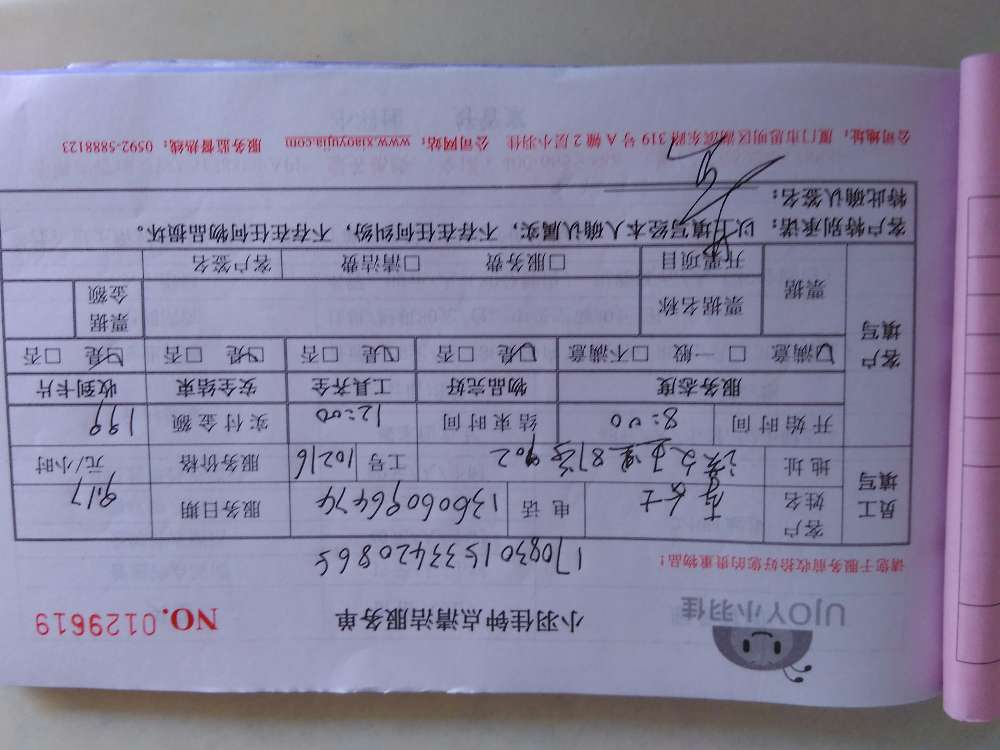 UJOY小羽佳
小羽佳钟点清洁服务单
NO.0129619
17083015334208 65
请您于服务前收拾好您的贵重物品！
员工填写
客户姓名 女士 电话 13606096474 服务日期 9.17
地址 87 902 工号 10216 服务价格 元/小时
客户填写
开始时间 8:00 结束时间 12:00 实付金额 199
服务态度 物品完好 工具齐全 安全结束 收到卡片
☑满意 □一般 □不满意 ☑是 □否 ☑是 □否 ☑是 □否 ☑是 □否
票据 票据名称 票据金额
开票项目 □服务费 □清洁费 客户签名
客户特别承诺：以上填写经本人确认属实，不存在任何纠纷，不存在任何物品损坏。
特此确认签名：
公司地址：厦门市思明区湖滨东路 319 号 A 幢 2 层小羽佳 公司网站：www.xiaoyujia.com 服务监督热线：0592-5888123